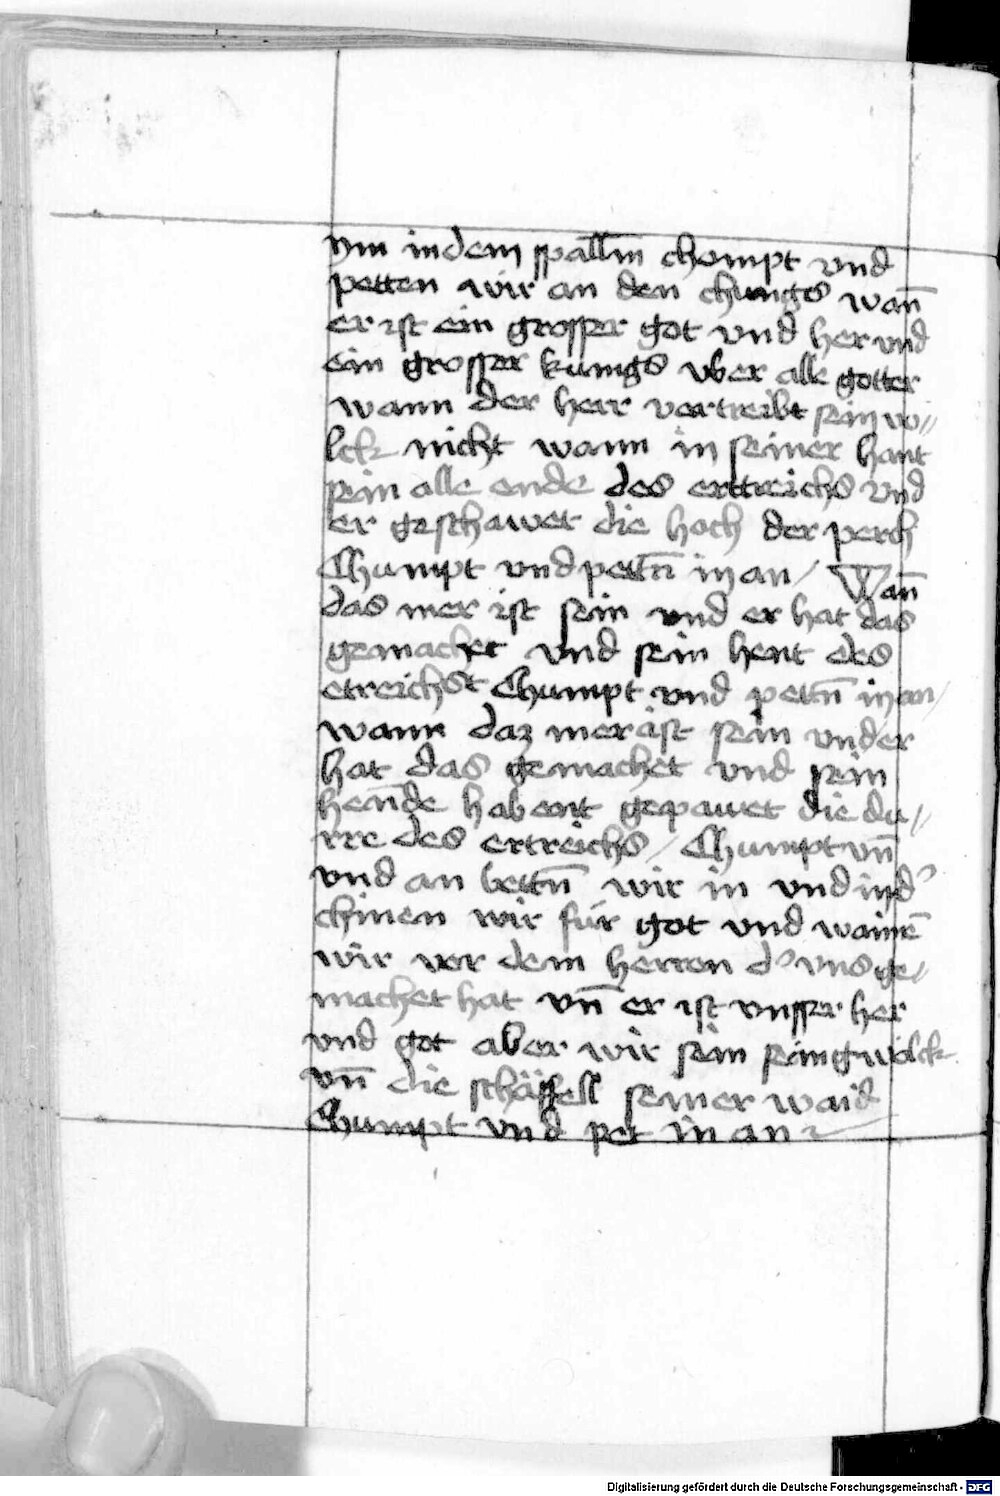 ym in dem spallm̄ chompt vnd
petten wir an den chunigs wan̄
er ist ein grosser got vnd her vnd
ein grosser kunigs vber alle gotter
wann der herr vertreibt sein vo //
lck nicht wann in seiner hant
sein alle ende des erttreichs vnd
er geschawet die hoch der perch
Chumpt vnd pettn̄ in an / Wan̄
das mer ist sein vnd er hat das
gemachet vnd sein hent des
etreichst Chumpt vnd pettn̄ in an /
wann daz mer ist sein vnd er
hat das gemachet vnd sein
hende habent gepawet die du //
rre des ertreichs / Chumpt vn̄
vnd an bettn̄ wir in vnd in d'
chinen wir für got vnd wainē
wir vor dem herren d' vns ge /
machet hat vn̄ er ist vnsser her
vnd got aber wir sein sein gwolck
vn̄ die schäffell seiner waid
Chumpt vnd pet in an
Digitalisierung gefördert durch die Deutsche Forschungsgemeinschaft - DFG